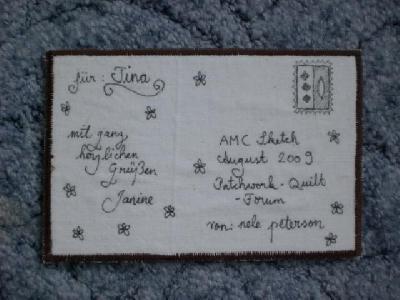 für: Tina
mit ganz
herzlichen
Grüßen
Janine
AMC Sketch
August 2009
Patchwork-Quilt
-Forum
von: nele peterson